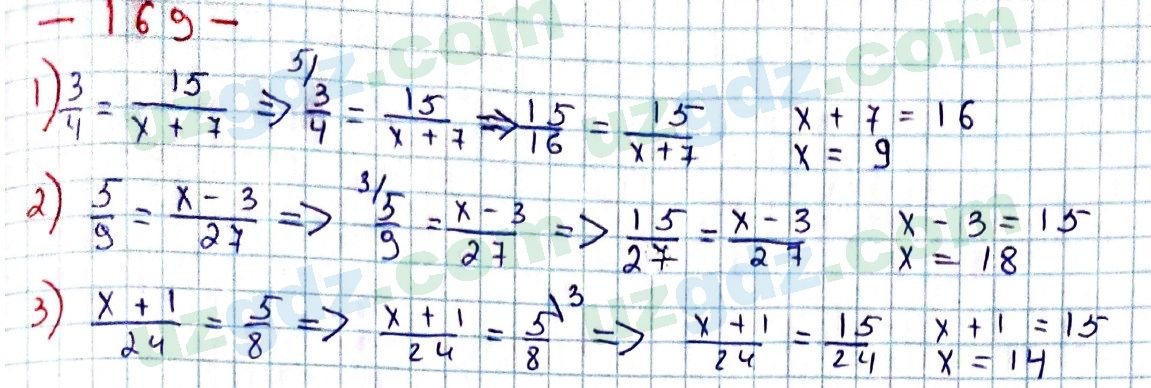 - 169 -
1) 3/4 = 15/(x + 7) => 5/ 3/4 = 15/(x + 7) => 15/16 = 15/(x + 7) x + 7 = 16
x = 9
2) 5/9 = (x - 3)/27 => 3/ 5/9 = (x - 3)/27 => 15/27 = (x - 3)/27 x - 3 = 15
x = 18
3) (x + 1)/24 = 5/8 => (x + 1)/24 = 5/8 \3 => (x + 1)/24 = 15/24 x + 1 = 15
x = 14
uzgdz.com